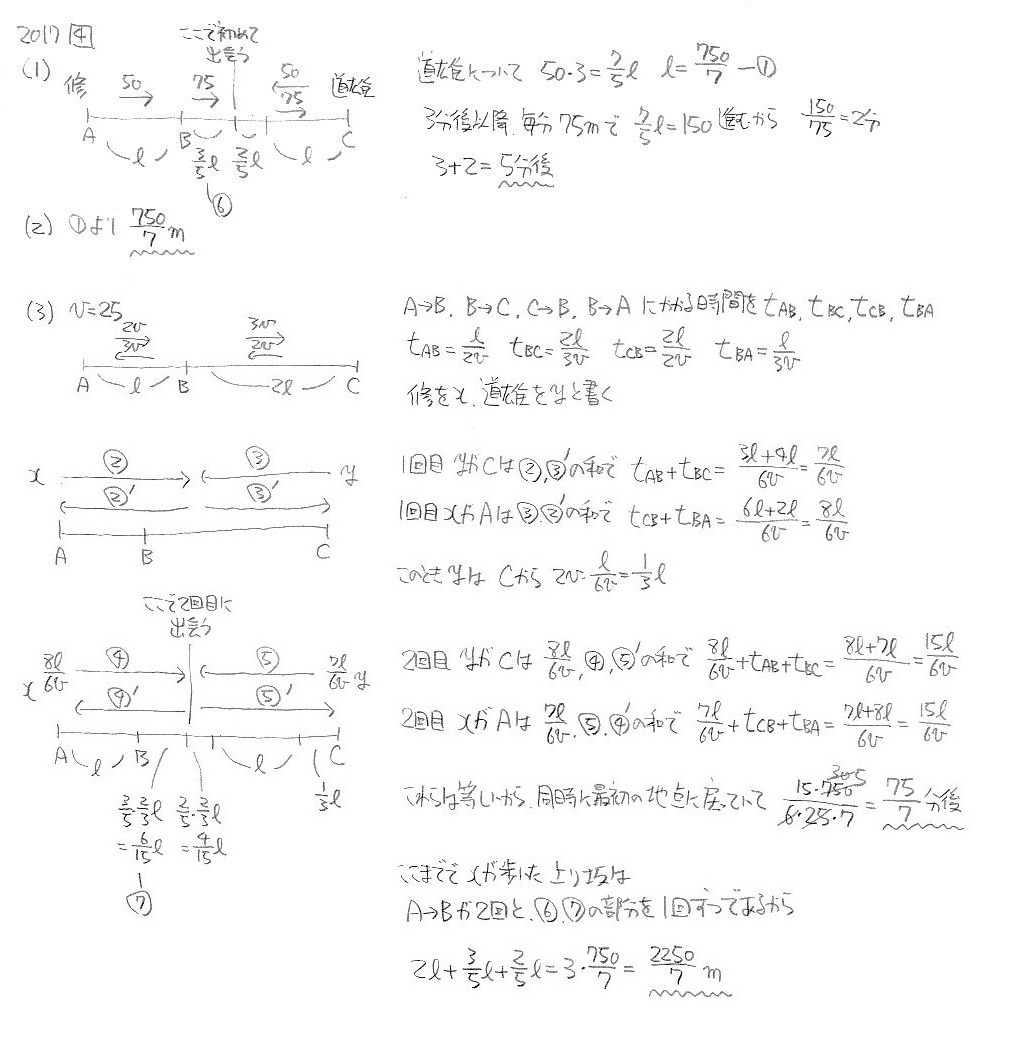 2017 4
(1)
ここで初めて
出会う
修 50 75 50 75 道雄
A B C
l 3/5 l 2/5 l l
⑥
道雄について 50・3=7/5 l l=750/7 ―①
3分後以降、毎分75mで 7/5 l=150 進むから 150/75=2分
3+2=5分後
(2) ①より 750/7 m
(3) v=25
2v 3v 3v 2v
A l B 2l C
A→B, B→C, C→B, B→A にかかる時間を tAB, tBC, tCB, tBA
tAB=l/2v tBC=2l/3v tCB=2l/2v tBA=l/3v
修をx、道雄をyと書く
x ② ③ y
②′ ③′
A B C
1回目 yがCは②,③′の和で tAB+tBC=(3l+4l)/6v=7l/6v
1回目 xがAは③,②′の和で tCB+tBA=(6l+2l)/6v=8l/6v
このとき yは Cから 2v・l/6v=1/3 l
ここで2回目に
出会う
x 8l/6v ④ ⑤ 7l/6v y
④′ ⑤′
A l B l C
3/5・2/3 l 2/5・2/3 l 1/3 l
=6/15 l =4/15 l
⑦
2回目 yがCは 8l/6v, ④, ⑤′の和で 8l/6v+tAB+tBC=(8l+7l)/6v=15l/6v
2回目 xがAは 7l/6v, ⑤, ④′の和で 7l/6v+tCB+tBA=(7l+8l)/6v=15l/6v
これらは等しいから、同時に最初の地点に戻っていて 15・750/6・25・7=75/7 分後
ここまでで xが歩いた上り坂は
A→Bが2回と、⑥,⑦の部分を1回ずつであるから
2l+3/5 l+2/5 l=3・750/7=2250/7 m